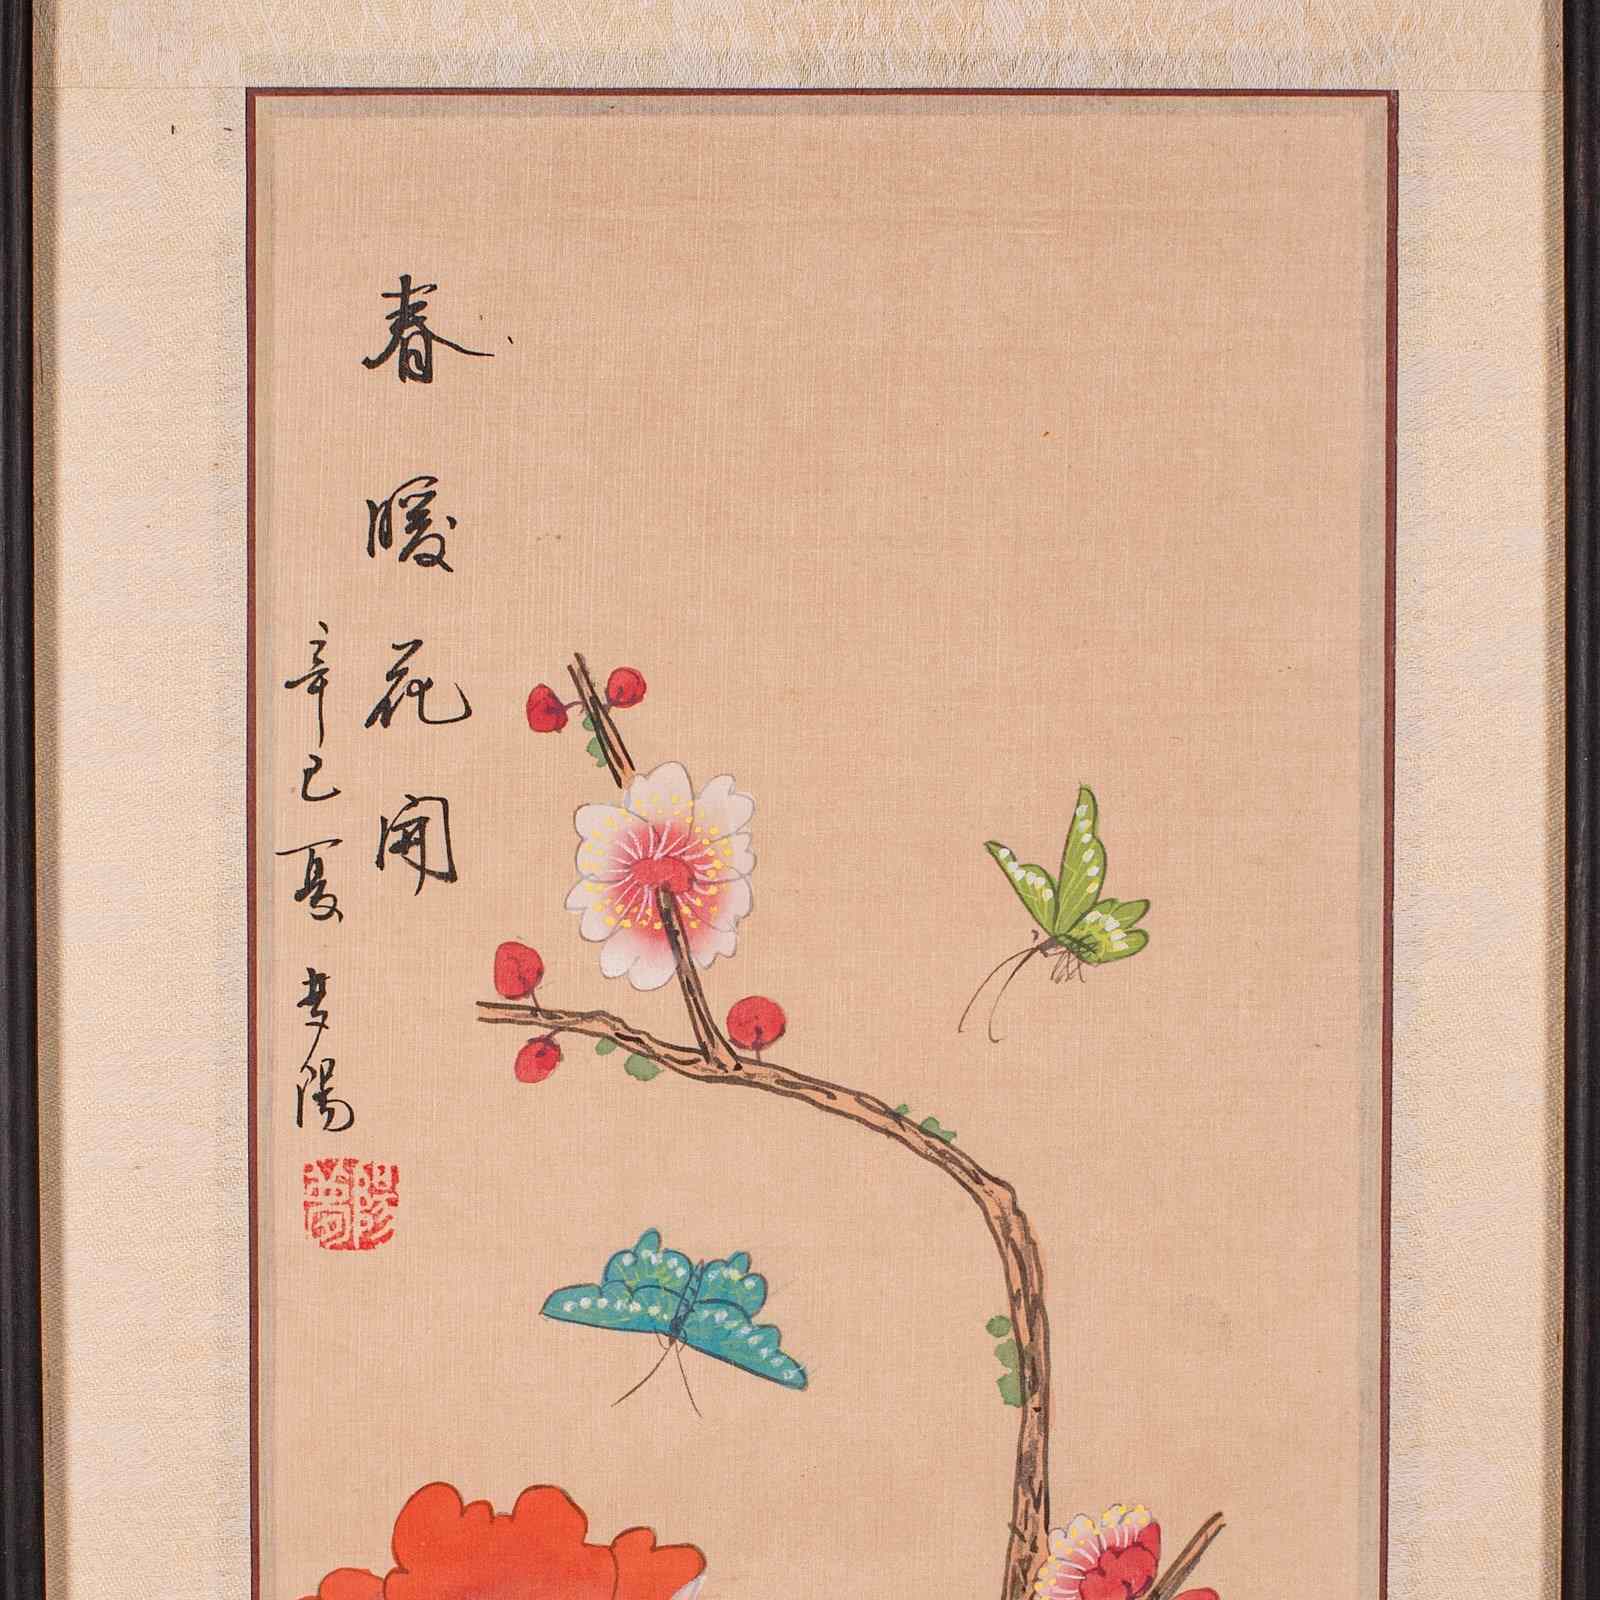 春暖花開
辛巳夏夢陽